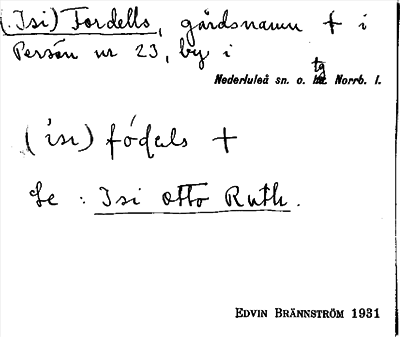 (Isi) Fordells, gårdsnamn † i
Persön nr 23, by i
Nederluleå sn. o. tg Norrb. l.
(isi) fódals †
Se : Isi Otto Ruth.
EDVIN BRÄNNSTRÖM 1931